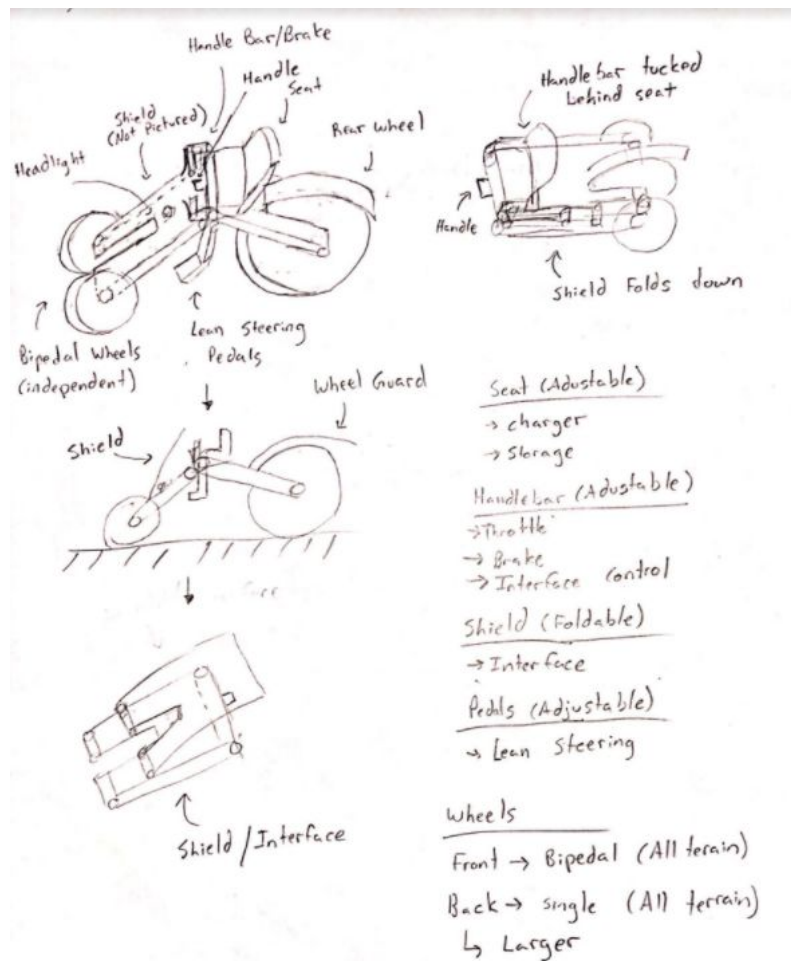 Handle Bar/Brake
Handle
Seat
Shield
(Not Pictured)
Rear Wheel
Headlight
Bipedal Wheels
(independent)
Lean Steering
Pedals
Handlebar tucked
behind seat
Handle
Shield Folds down
Wheel Guard
Shield
Shield/Interface
Seat (Adustable)
→ charger
→ Storage
Handlebar (Adustable)
→ Throttle
→ Brake
→ Interface control
Shield (Foldable)
→ Interface
Pedals (Adjustable)
→ Lean Steering
Wheels
Front → Bipedal (All terrain)
Back → single (All terrain)
↳ Larger